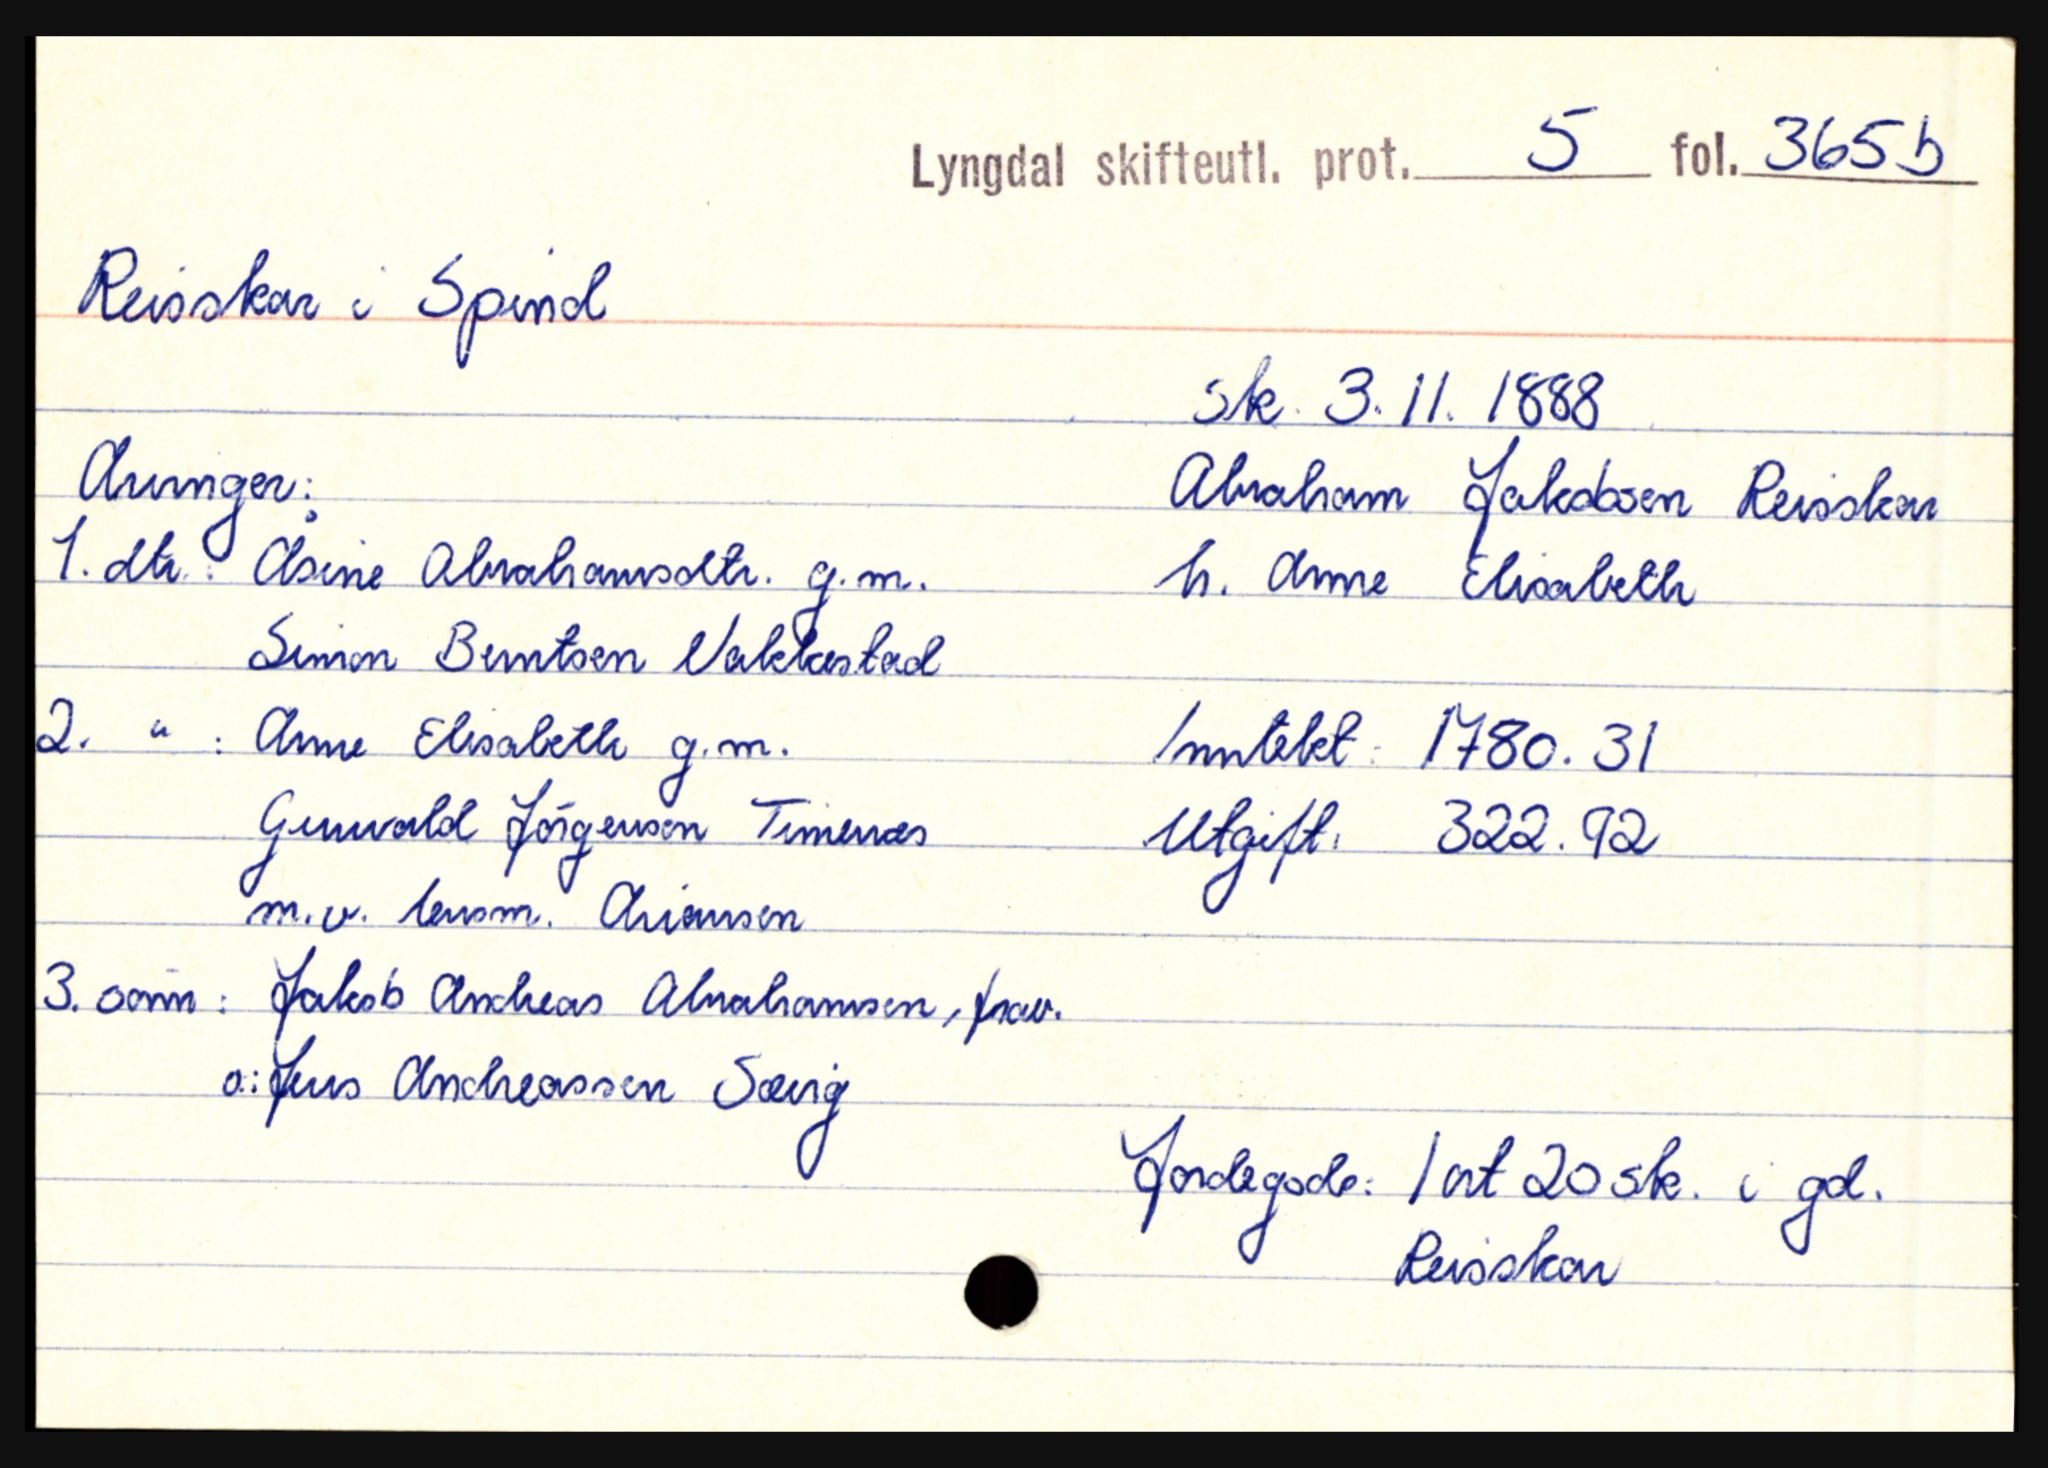 Lyngdal skifteutl. prot. 5 fol. 365 b
Reisskar i Spind
sk. 3.11.1888
Abraham Jakobsen Reisskar
h. Anne Elisabeth
Arvinger:
1. dtr.: Åsine Abrahamsdtr. g.m.
Simon Berntsen Vakkestad
2. " : Anne Elisabeth g.m.
Gunvald Jörgensen Timenes
m.v. lensm. Ariansen
3. sönn: Jakob Andreas Abrahamsen, frav.
o: Jens Andreassen Sævig
Inntekt: 1780.31
Utgift: 322.92
Jordegods: 1 ort 20 sk. i gd.
Reisskar